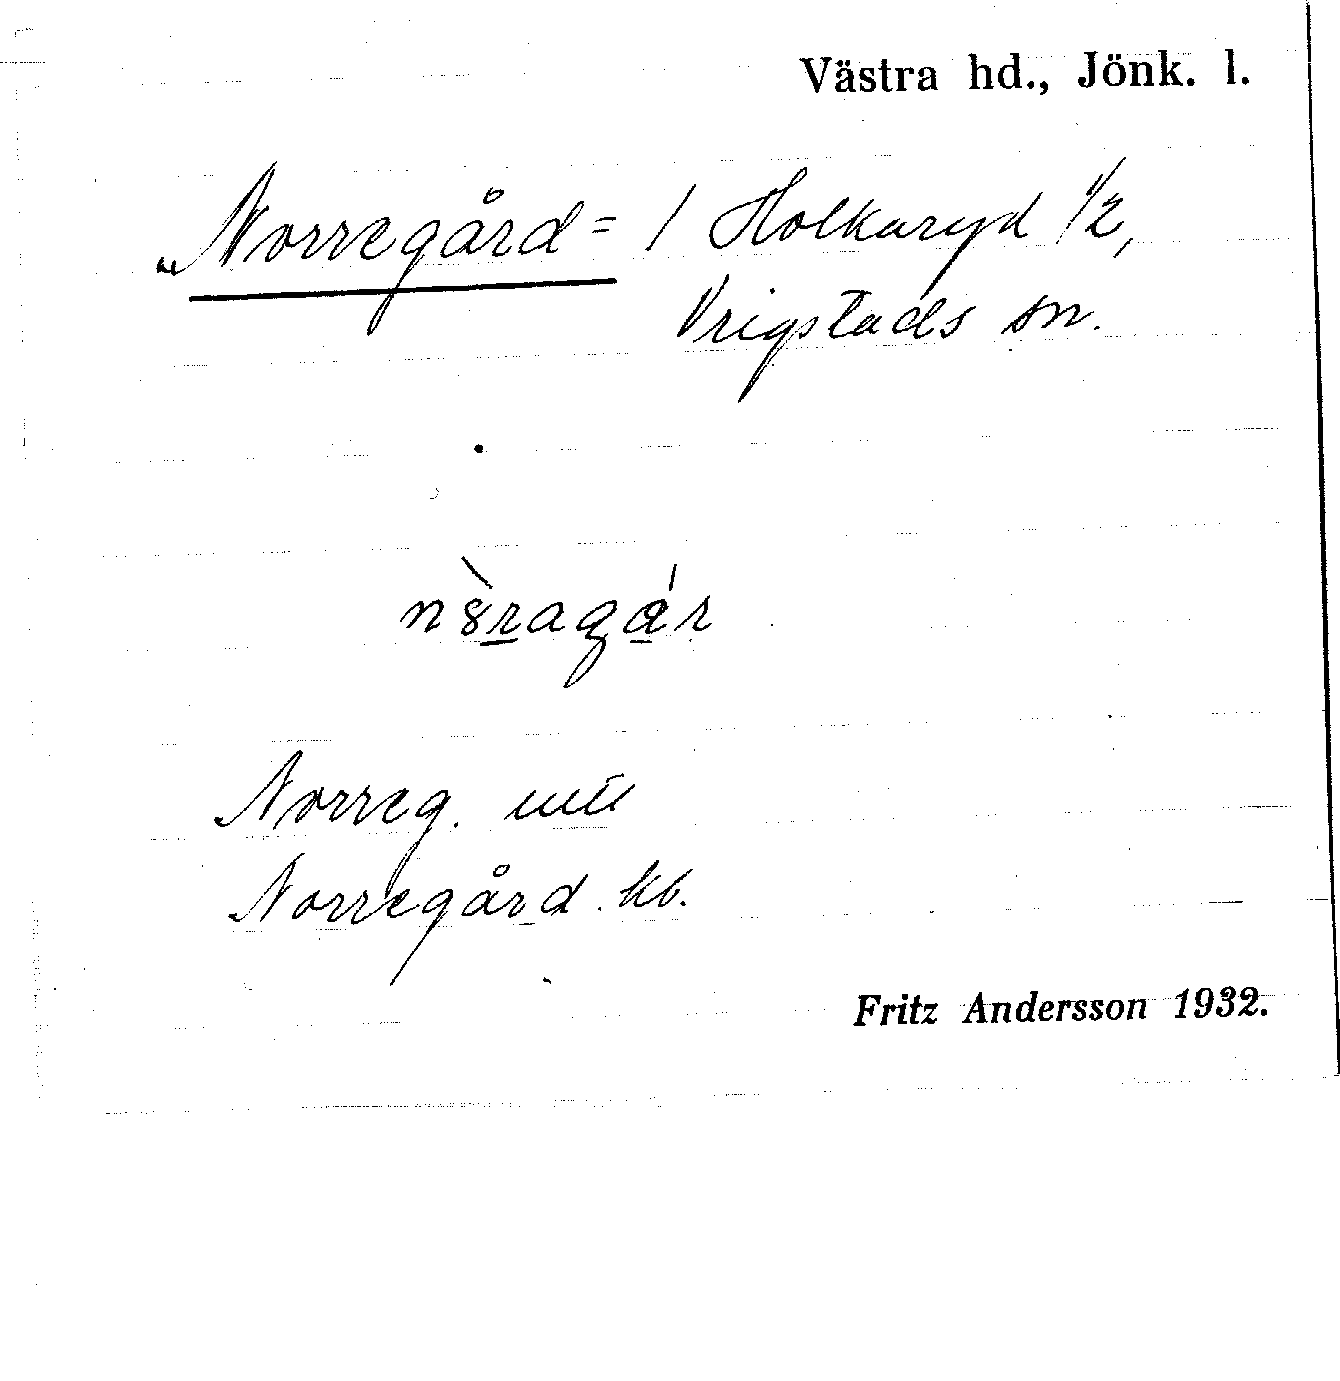 Västra hd., Jönk. l.
Norregård = / Holkaryd 1/2,
Vrigstads sn.
Norreg.
Norregård kb.
Fritz Andersson 1932.